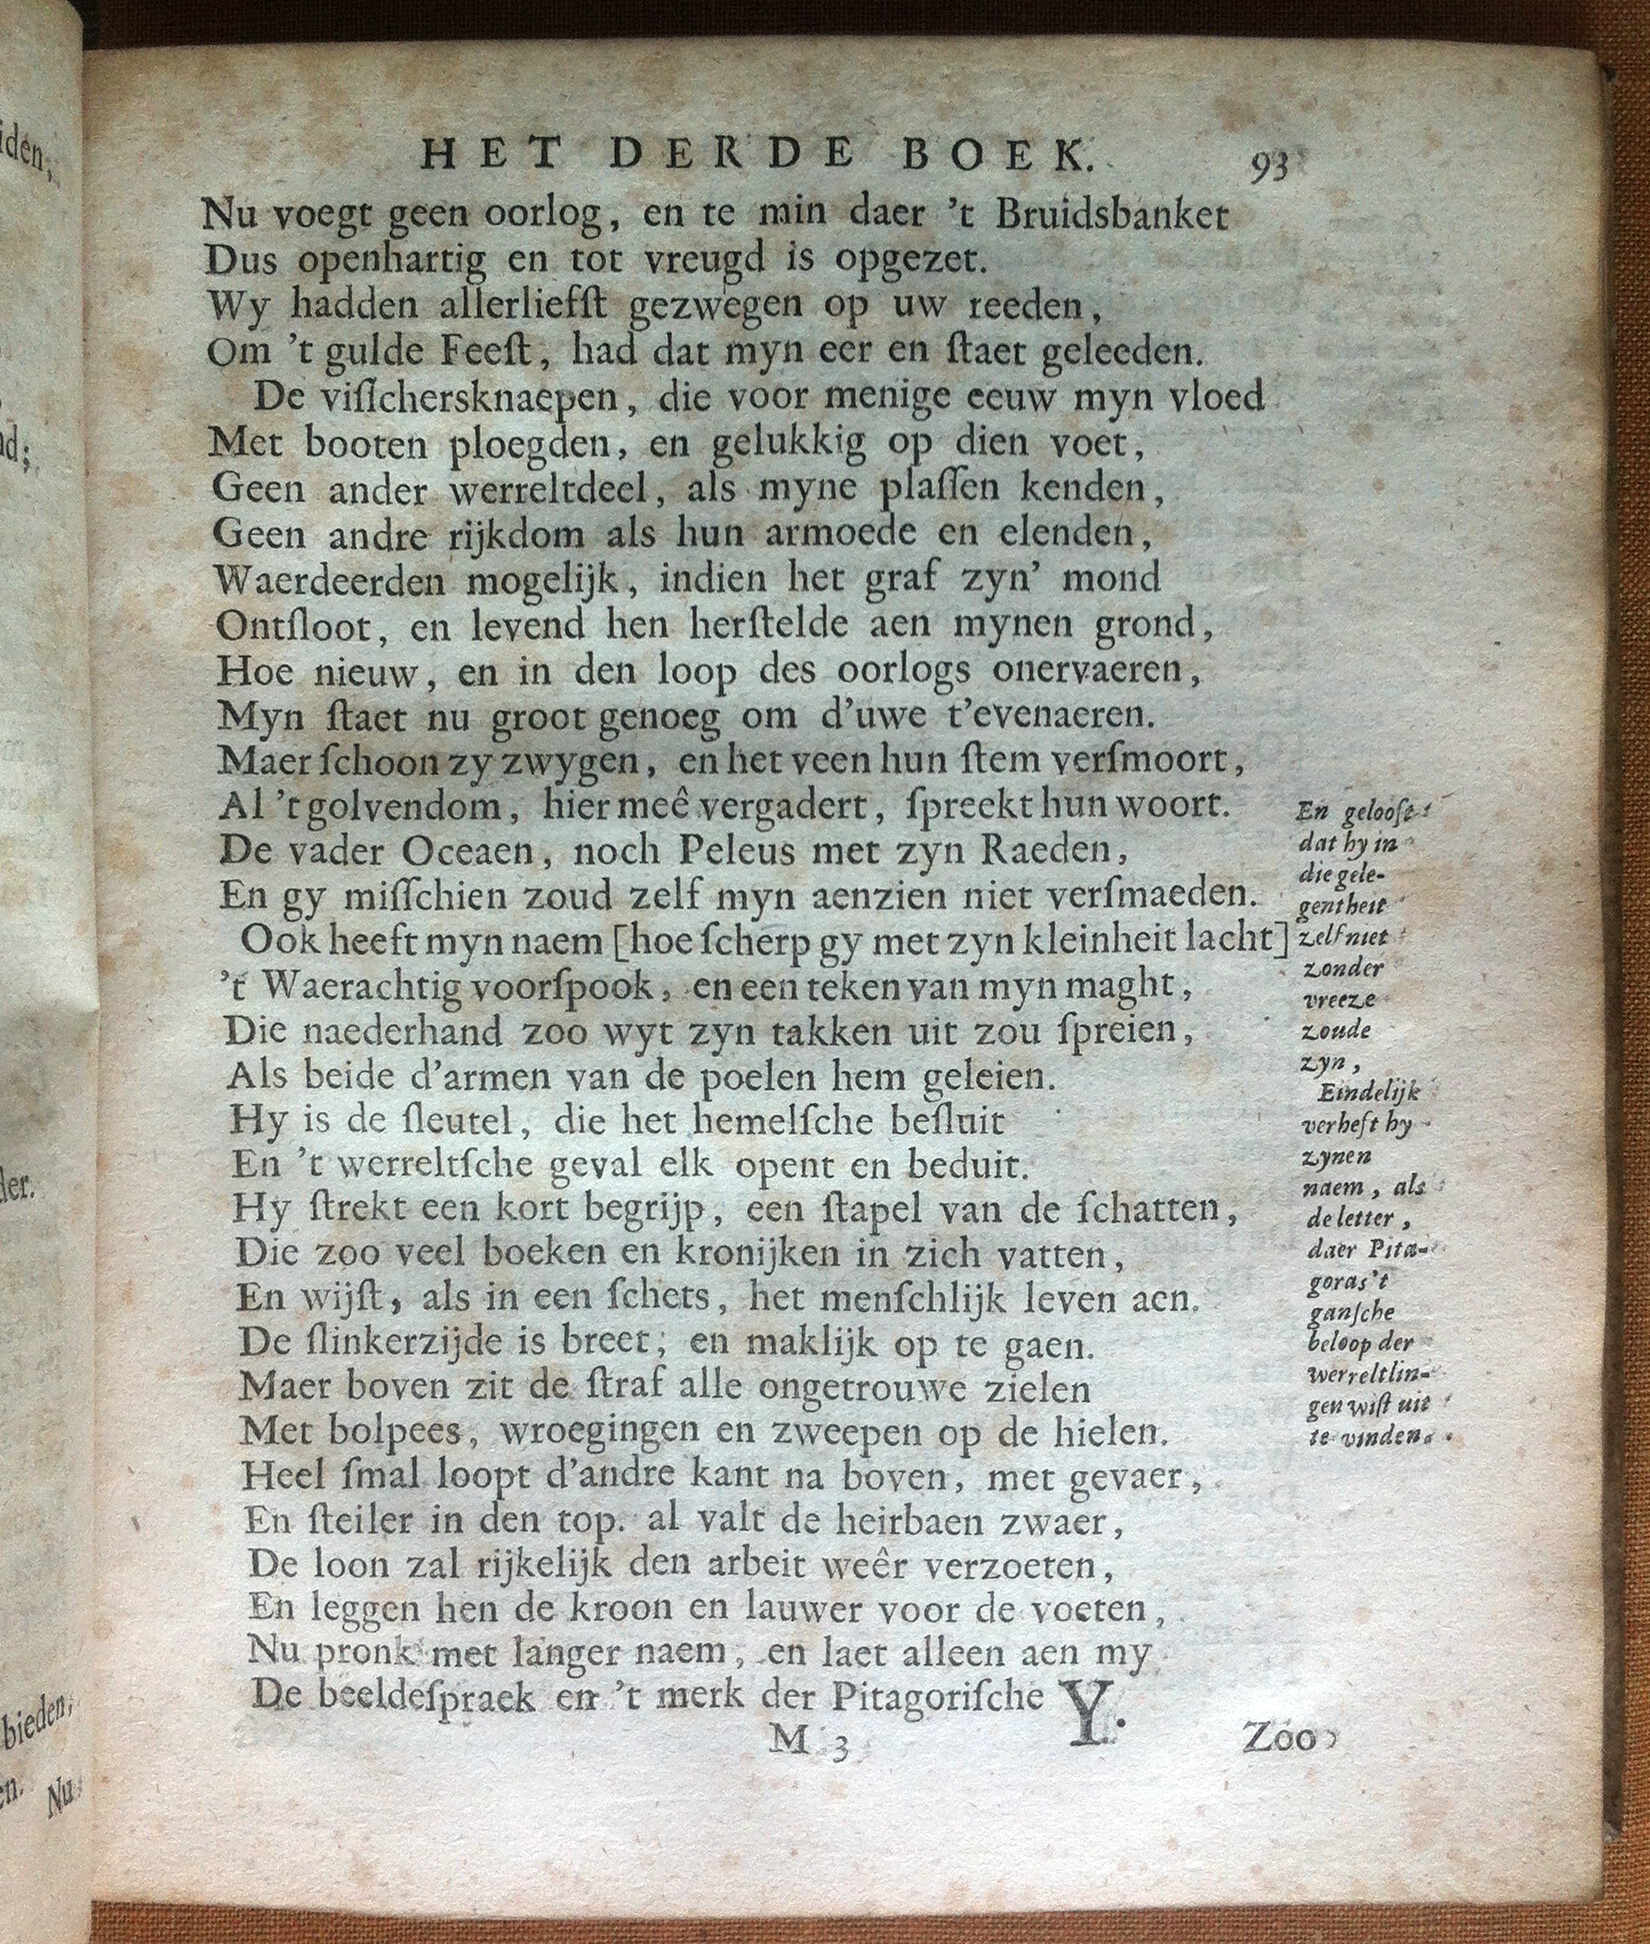 HET DERDE BOEK. 93
Nu voegt geen oorlog, en te min daer 't Bruidsbanket
Dus openhartig en tot vreugd is opgezet.
Wy hadden allerliefſt gezwegen op uw reeden,
Om 't gulde Feeſt, had dat myn eer en ſtaet geleeden.
De viſſchersknaepen, die voor menige eeuw myn vloed
Met booten ploegden, en gelukkig op dien voet,
Geen ander werreltdeel, als myne plaſſen kenden,
Geen andre rijkdom als hun armoede en elenden,
Waerdeerden mogelijk, indien het graf zyn' mond
Ontſloot, en levend hen herſtelde aen mynen grond,
Hoe nieuw, en in den loop des oorlogs onervaeren,
Myn ſtaet nu groot genoeg om d'uwe t'evenaeren.
Maer ſchoon zy zwygen, en het veen hun ſtem verſmoort,
Al 't golvendom, hier meê vergadert, ſpreekt hun woort.
De vader Oceaen, noch Peleus met zyn Raeden,
En gy miſſchien zoud zelf myn aenzien niet verſmaeden.
Ook heeft myn naem [hoe ſcherp gy met zyn kleinheit lacht]
't Waerachtig voorſpook, en een teken van myn maght,
Die naederhand zoo wyt zyn takken uit zou ſpreien,
Als beide d'armen van de poelen hem geleien.
Hy is de ſleutel, die het hemelſche beſluit
En 't werreltſche geval elk opent en beduit.
Hy ſtrekt een kort begrijp, een ſtapel van de ſchatten,
Die zoo veel boeken en kronijken in zich vatten,
En wijſt, als in een ſchets, het menſchlijk leven aen.
De ſlinkerzijde is breet; en maklijk op te gaen.
Maer boven zit de ſtraf alle ongetrouwe zielen
Met bolpees, wroegingen en zweepen op de hielen.
Heel ſmal loopt d'andre kant na boven, met gevaer,
En ſteiler in den top. al valt de heirbaen zwaer,
De loon zal rijkelijk den arbeit weêr verzoeten,
En leggen hen de kroon en lauwer voor de voeten,
Nu pronk met langer naem, en laet alleen aen my
De beeldeſpraek en 't merk der Pitagoriſche Y.
M 3 Zoo
En gelooft
dat hy in
die gele-
gentheit
zelf niet
zonder
vreeze
zoude
zyn,
Eindelijk
verheft hy
zynen
naem, als
de letter,
daer Pita-
goras 't
ganſche
beloop der
werreltlin-
gen wiſt uit
te vinden.
iden,
d;
der.
bieden,
en.
Nu